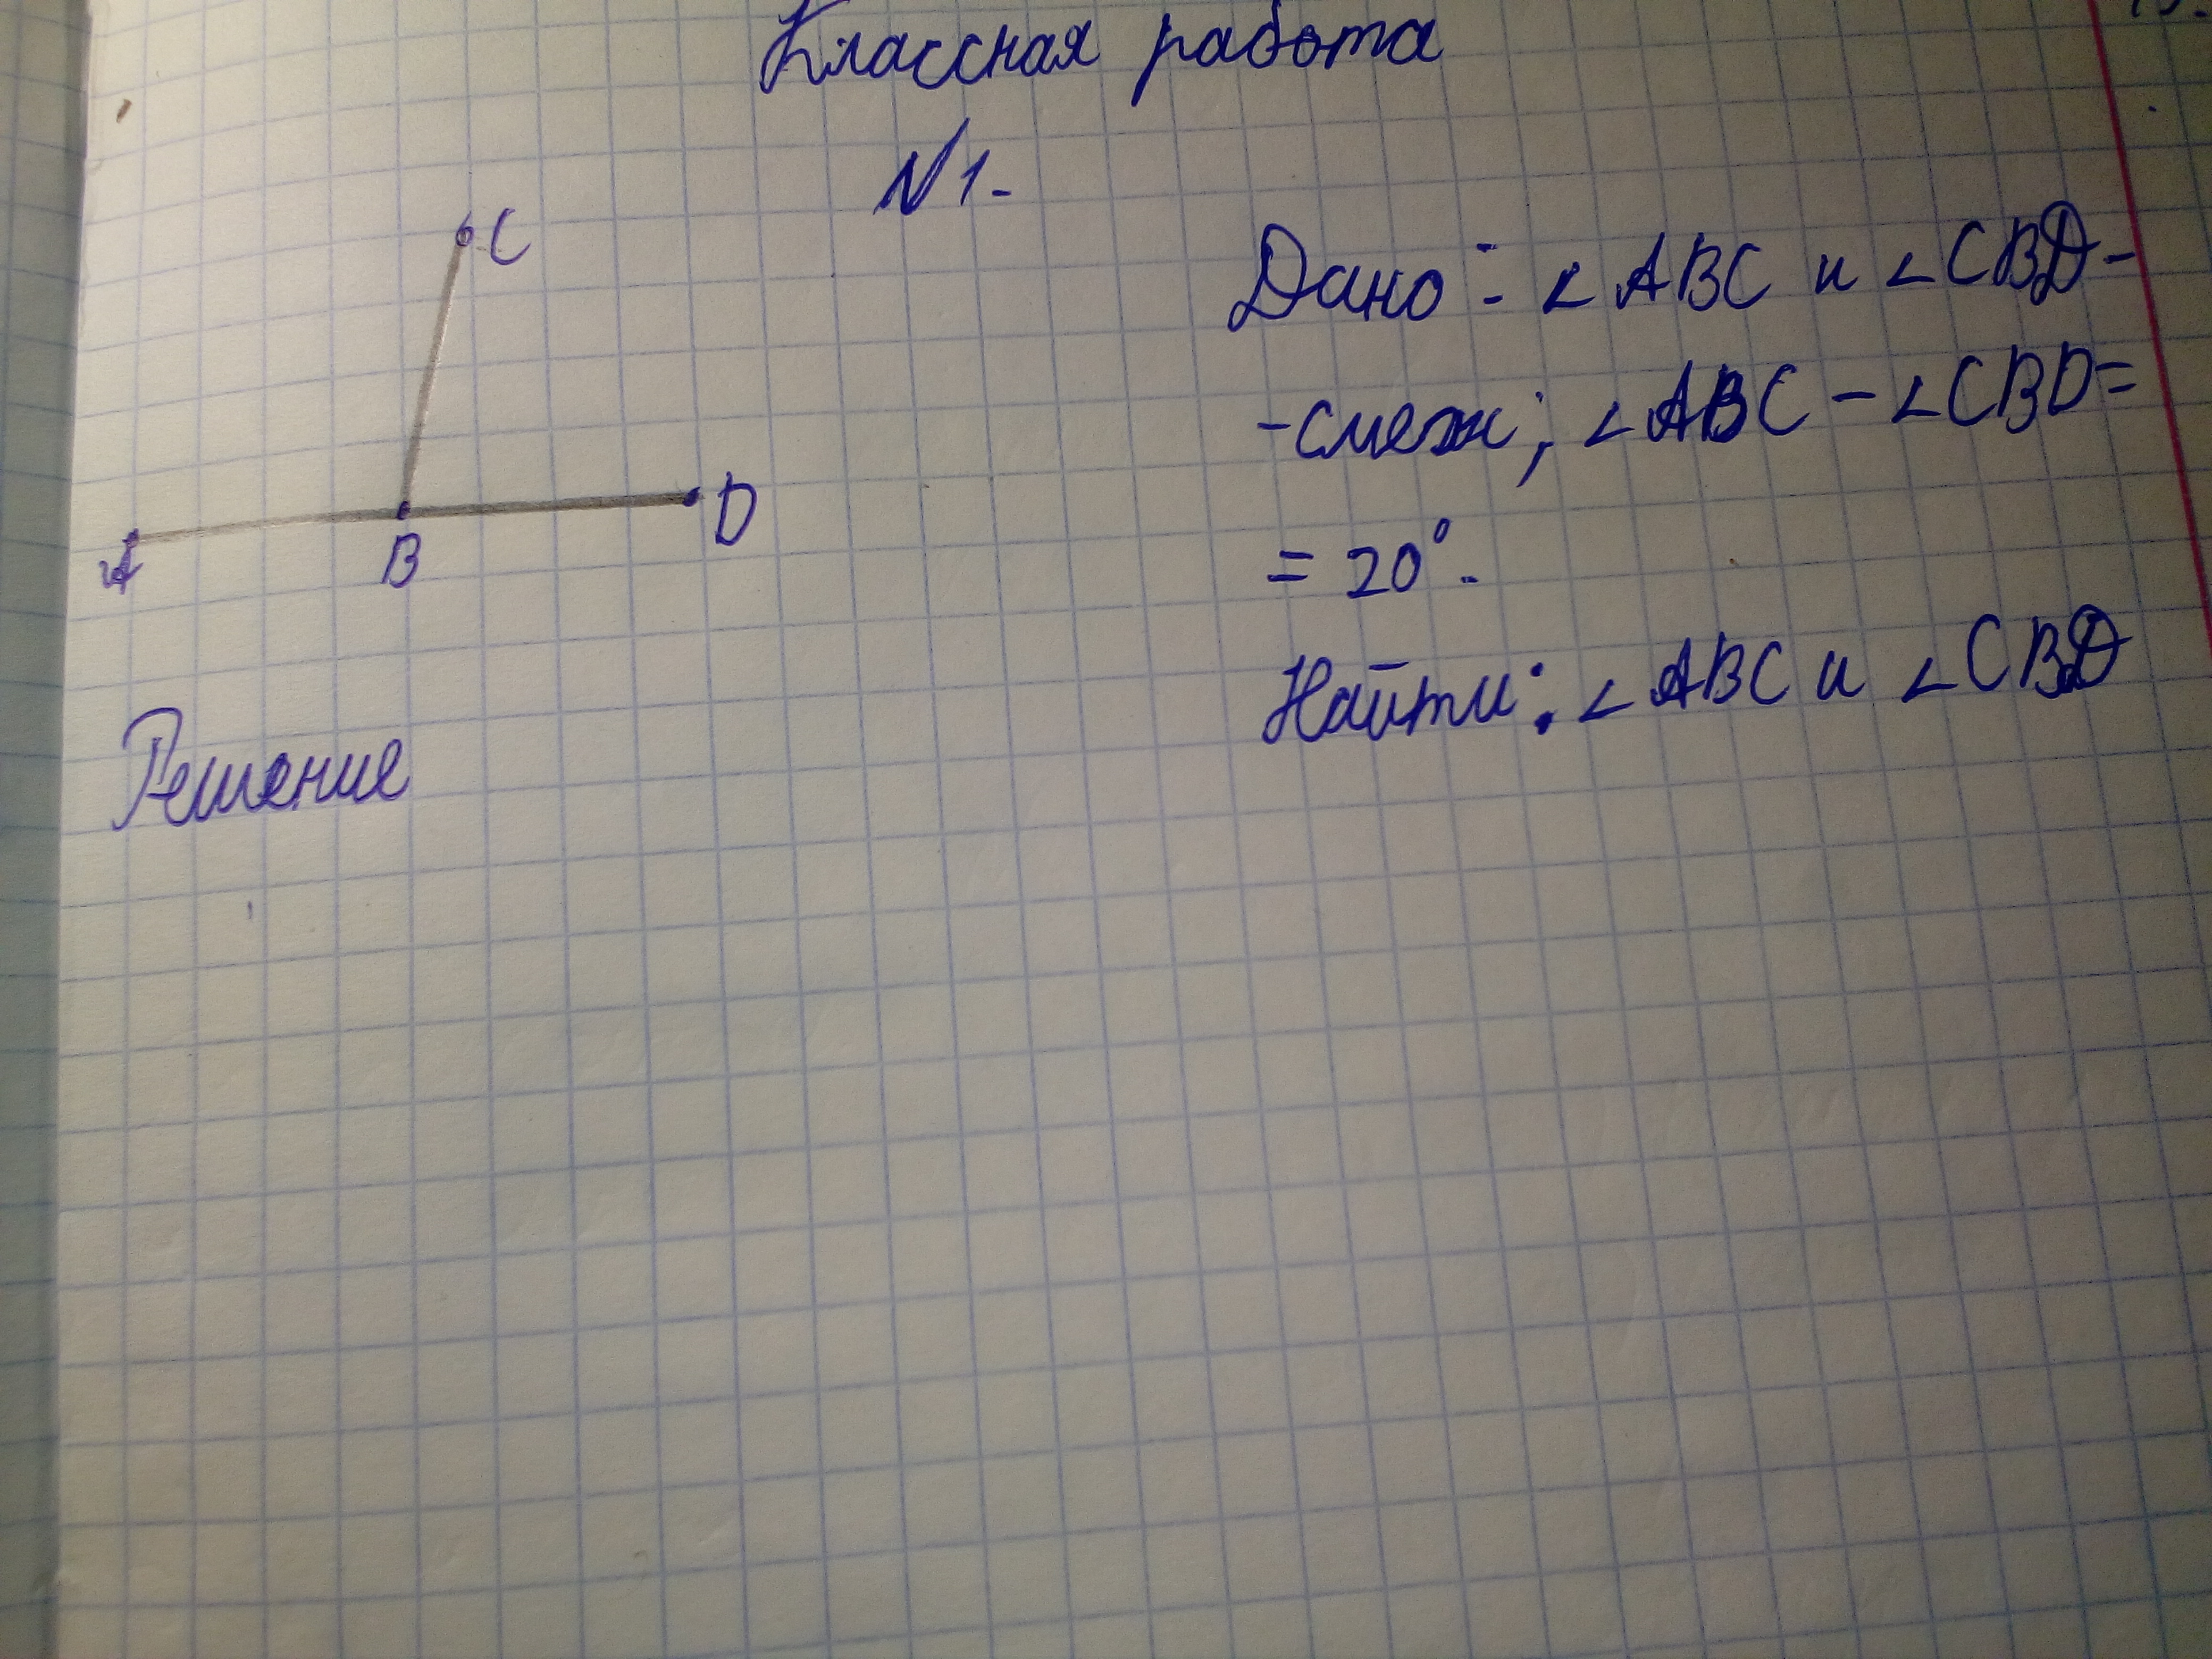 Классная работа
N1.
C
A
B
D
Дано: ∠ABC и ∠CBD-
-смеж; ∠ABC - ∠CBD=
= 20°.
Найти: ∠ABC и ∠CBD
Решение